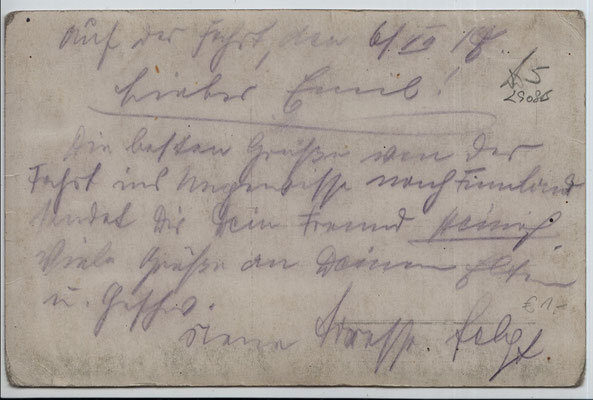 Auf der Fahrt, den 6/IV 18.
Lieber Emil!
45
29086
Die besten Grüße von der
Fahrt ins Ungewisse nach Finnland
sendet Dir Dein Freund
Viele Grüße an Deine Eltern
u. Geschw.
€ 1.-
Neue Adresse folgt